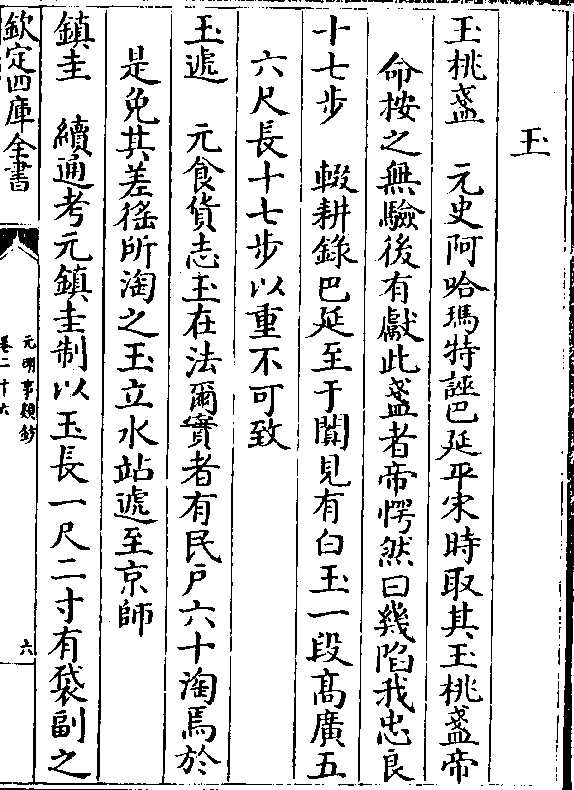 玉
玉桃盞 元史阿哈瑪特誣巴延平宋時取其玉桃盞帝
命按之無驗後有獻此盞者帝愕然曰幾陷我忠良
十七步 輟耕錄巴延至于闐見有白玉一段髙廣五
六尺長十七步以重不可致
玉遞 元食貨志玉在法爾實者有民戶六十淘焉於
是免其差徭所淘之玉立水站遞至京師
鎮圭 續通考元鎮圭制以玉長一尺二寸有袋副之
欽定四庫全書
元明事類鈔
卷二十六
六